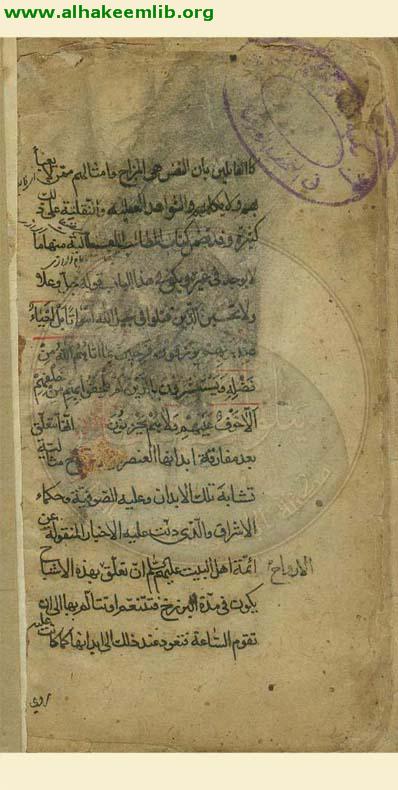 www.alhakeemlib.org
كالقائلين بان النفس هي المزاج وامثالهم ممن لا يعبأ
بهم ولا بكلامهم والشواهد العقلية والنقلية على ذلك
كثيرة وقد تضمن كتاب المطالب العالية منها ما
لا يوجد في غيره ويكفي في هذا الباب قوله جل وعلا
ولا تحسبن الذين قتلوا في سبيل الله امواتا بل احياء
عند ربهم يرزقون فرحين بما اتاهم الله من
فضله ويستبشرون بالذين لم يلحقوا بهم من خلفهم
الا خوف عليهم ولا هم يحزنون تتعلق
بعد مفارقة ابدانها العنصرية مثالية
تشابه تلك الابدان وعليه الصوفية وحكماء
الاشراق والذي دلت عليه الاخبار المنقولة عن
ائمة اهل البيت عليهم السلم ان تعلق بهذه الاشباح
الارواح
يكون في مدة البرزخ فتتنعم او تتألم بها الى ان
تقوم الساعة فتعود عند ذلك الى ابدانها كما كانت عليه